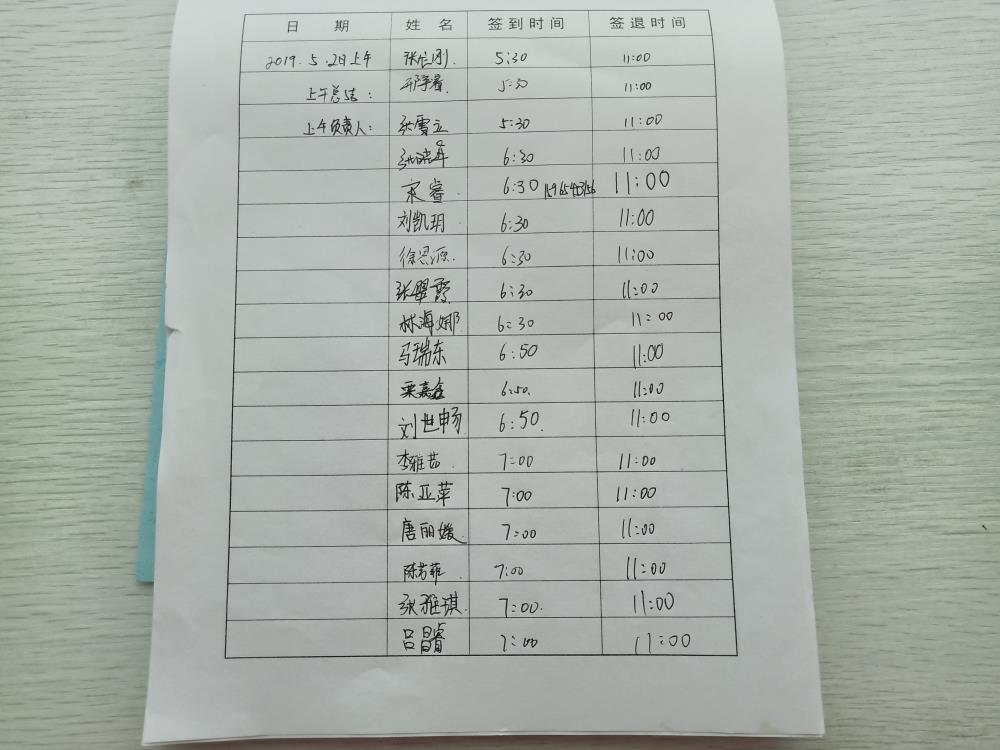 日 期 姓 名 签到时间 签退时间
2019.5.2日上午 张仁刚 5:30 11:00
上午总结: 5:30 11:00
上午负责人: 张雪立 5:30 11:00
6:30 11:00
宋睿. 6:30 11:00
刘凯玥 6:30 11:00
徐思源. 6:30 11:00
张翠霞 6:30 11:00
林海娜 6:30 11:00
马瑞东 6:50 11:00
栗嘉鑫 6:50. 11:00
刘世畅 6:50. 11:00
李雅茹. 7:00 11:00
陈亚苹 7:00 11:00
唐丽媛. 7:00 11:00
陈芳菲. 7:00 11:00
张雅琪. 7:00. 11:00
吕昌睿 7:00 11:00